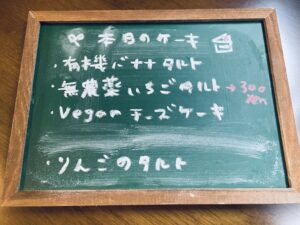 本日のケーキ
・有機バナナタルト
・無農薬いちごのタルト → 300 yen
・Vegan チーズケーキ
・りんごのタルト